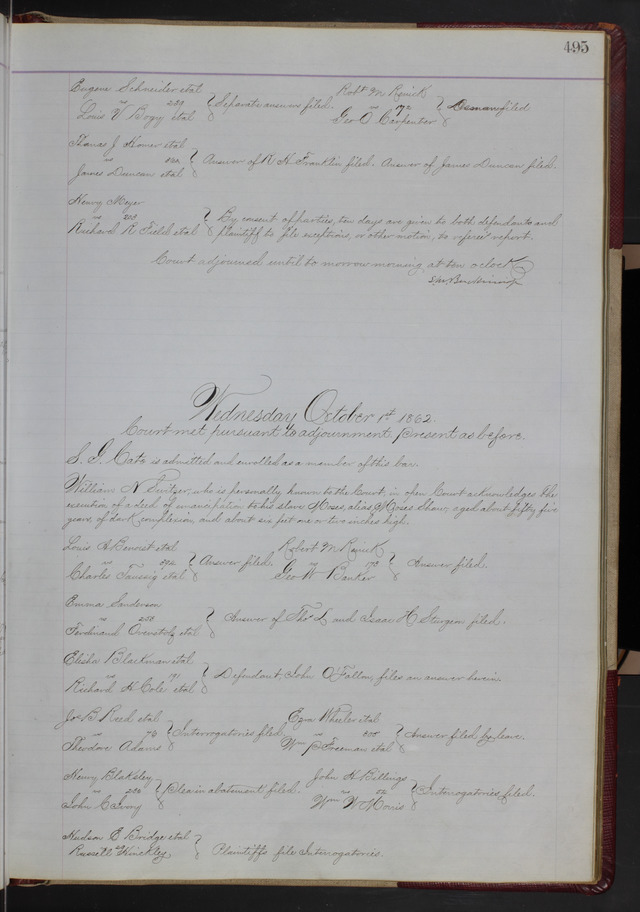 495
Eugene Schneider etal
vs 229 } Separate answer filed.
Louis V Bogy etal
Robt M Renick
vs 172 } Demurr filed
Geo O Carpenter
Thomas J Homer etal
vs } Answer of R H Franklin filed. Answer of James Duncan filed.
James Duncan etal
Henry Meyer
vs 203 } By consent of parties, ten days are given to both defendants and
Richard R Field etal plaintiff to file exceptions, or other motion, to referees report.
Court adjourned until to morrow morning at ten o clock
Wednesday October 1st 1862.
Court met pursuant to adjournment. Present as before.
S. G. Cato is admitted and enrolled as a member of this bar.
William N Switzer, who is personally known to the Court, in open Court acknowledges the
execution of a deed of emancipation to his slave Moses, alias Moses Shaw, aged about fifty five
years, of dark complexion, and about six feet one or two inches high.
Louis A Benoist etal
vs } Answer filed.
Charles Taussig etal
Robert M Renick
vs 173 } Answer filed.
Geo W Banker
Emma Sanderson
vs } Answer of Thos L and Isaac H Sturgeon filed.
Ferdinand Overstolz etal
Elisha Blackman etal
vs 191 } Defendant John O'Fallon, files an answer herein.
Richard H Cole etal
Jos B Reed etal
vs 76 } Interrogatories filed.
Theodore Adams
Ezra Wheeler etal
vs } Answer filed by leave.
Wm P Freeman etal
Henry Blaksley
vs } Plea in abatement filed.
John C Ivory
John H Billings
vs } Interrogatories filed.
Wm W Morris
Hudson E Bridge etal
} Plaintiffs file Interrogatories.
Russell Hinckley